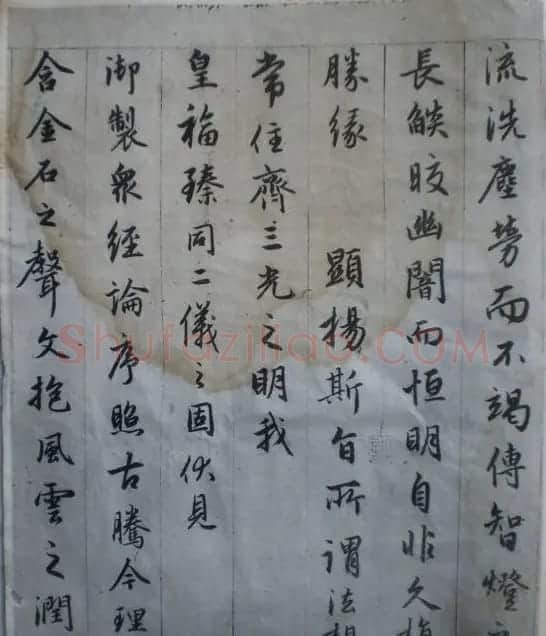 流洗塵勞而不竭傳智燈
長燄晈幽闇而恒明自非久
勝緣 顯揚斯旨所謂法相
常住齊三光之明我
皇福臻同二儀之固伏見
御製衆經論序照古騰今理
含金石之聲文抱風雲之潤
Shufaziliao.COM